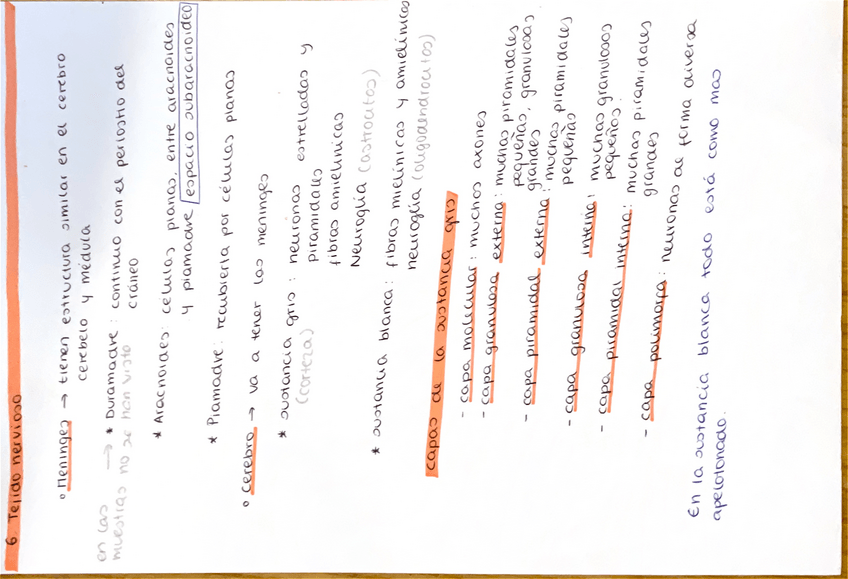 6. Tejido nervioso
o Meninges → tienen estructura similar en el cerebro
cerebelo y médula
en las → * Duramadre: continuo con el periostio del
muestras no se han visto cráneo
* Aracnoides: células planas, entre aracnoides
y piamadre espacio subaracnoideo
* Piamadre: recubierta por células planas
o Cerebro → va a tener las meninges
* sustancia gris: neuronas estrelladas y
(corteza) piramidales
fibras amielínicas
Neuroglía (astrocitos)
* sustancia blanca: fibras mielínicas y amielínicas
neuroglía (oligodendrocitos)
capas de la sustancia gris
- capa molecular: muchos axones
- capa granulosa externa: muchas piramidales
pequeñas, granulosas
- capa piramidal externa: muchas piramidales
grandes
pequeñas
- capa granulosa interna: muchas granulosas
pequeñas.
- capa piramidal interna: muchas piramidales
grandes
- capa polimorfa: neuronas de forma diversa
En la sustancia blanca todo está como mas
apelotonado.